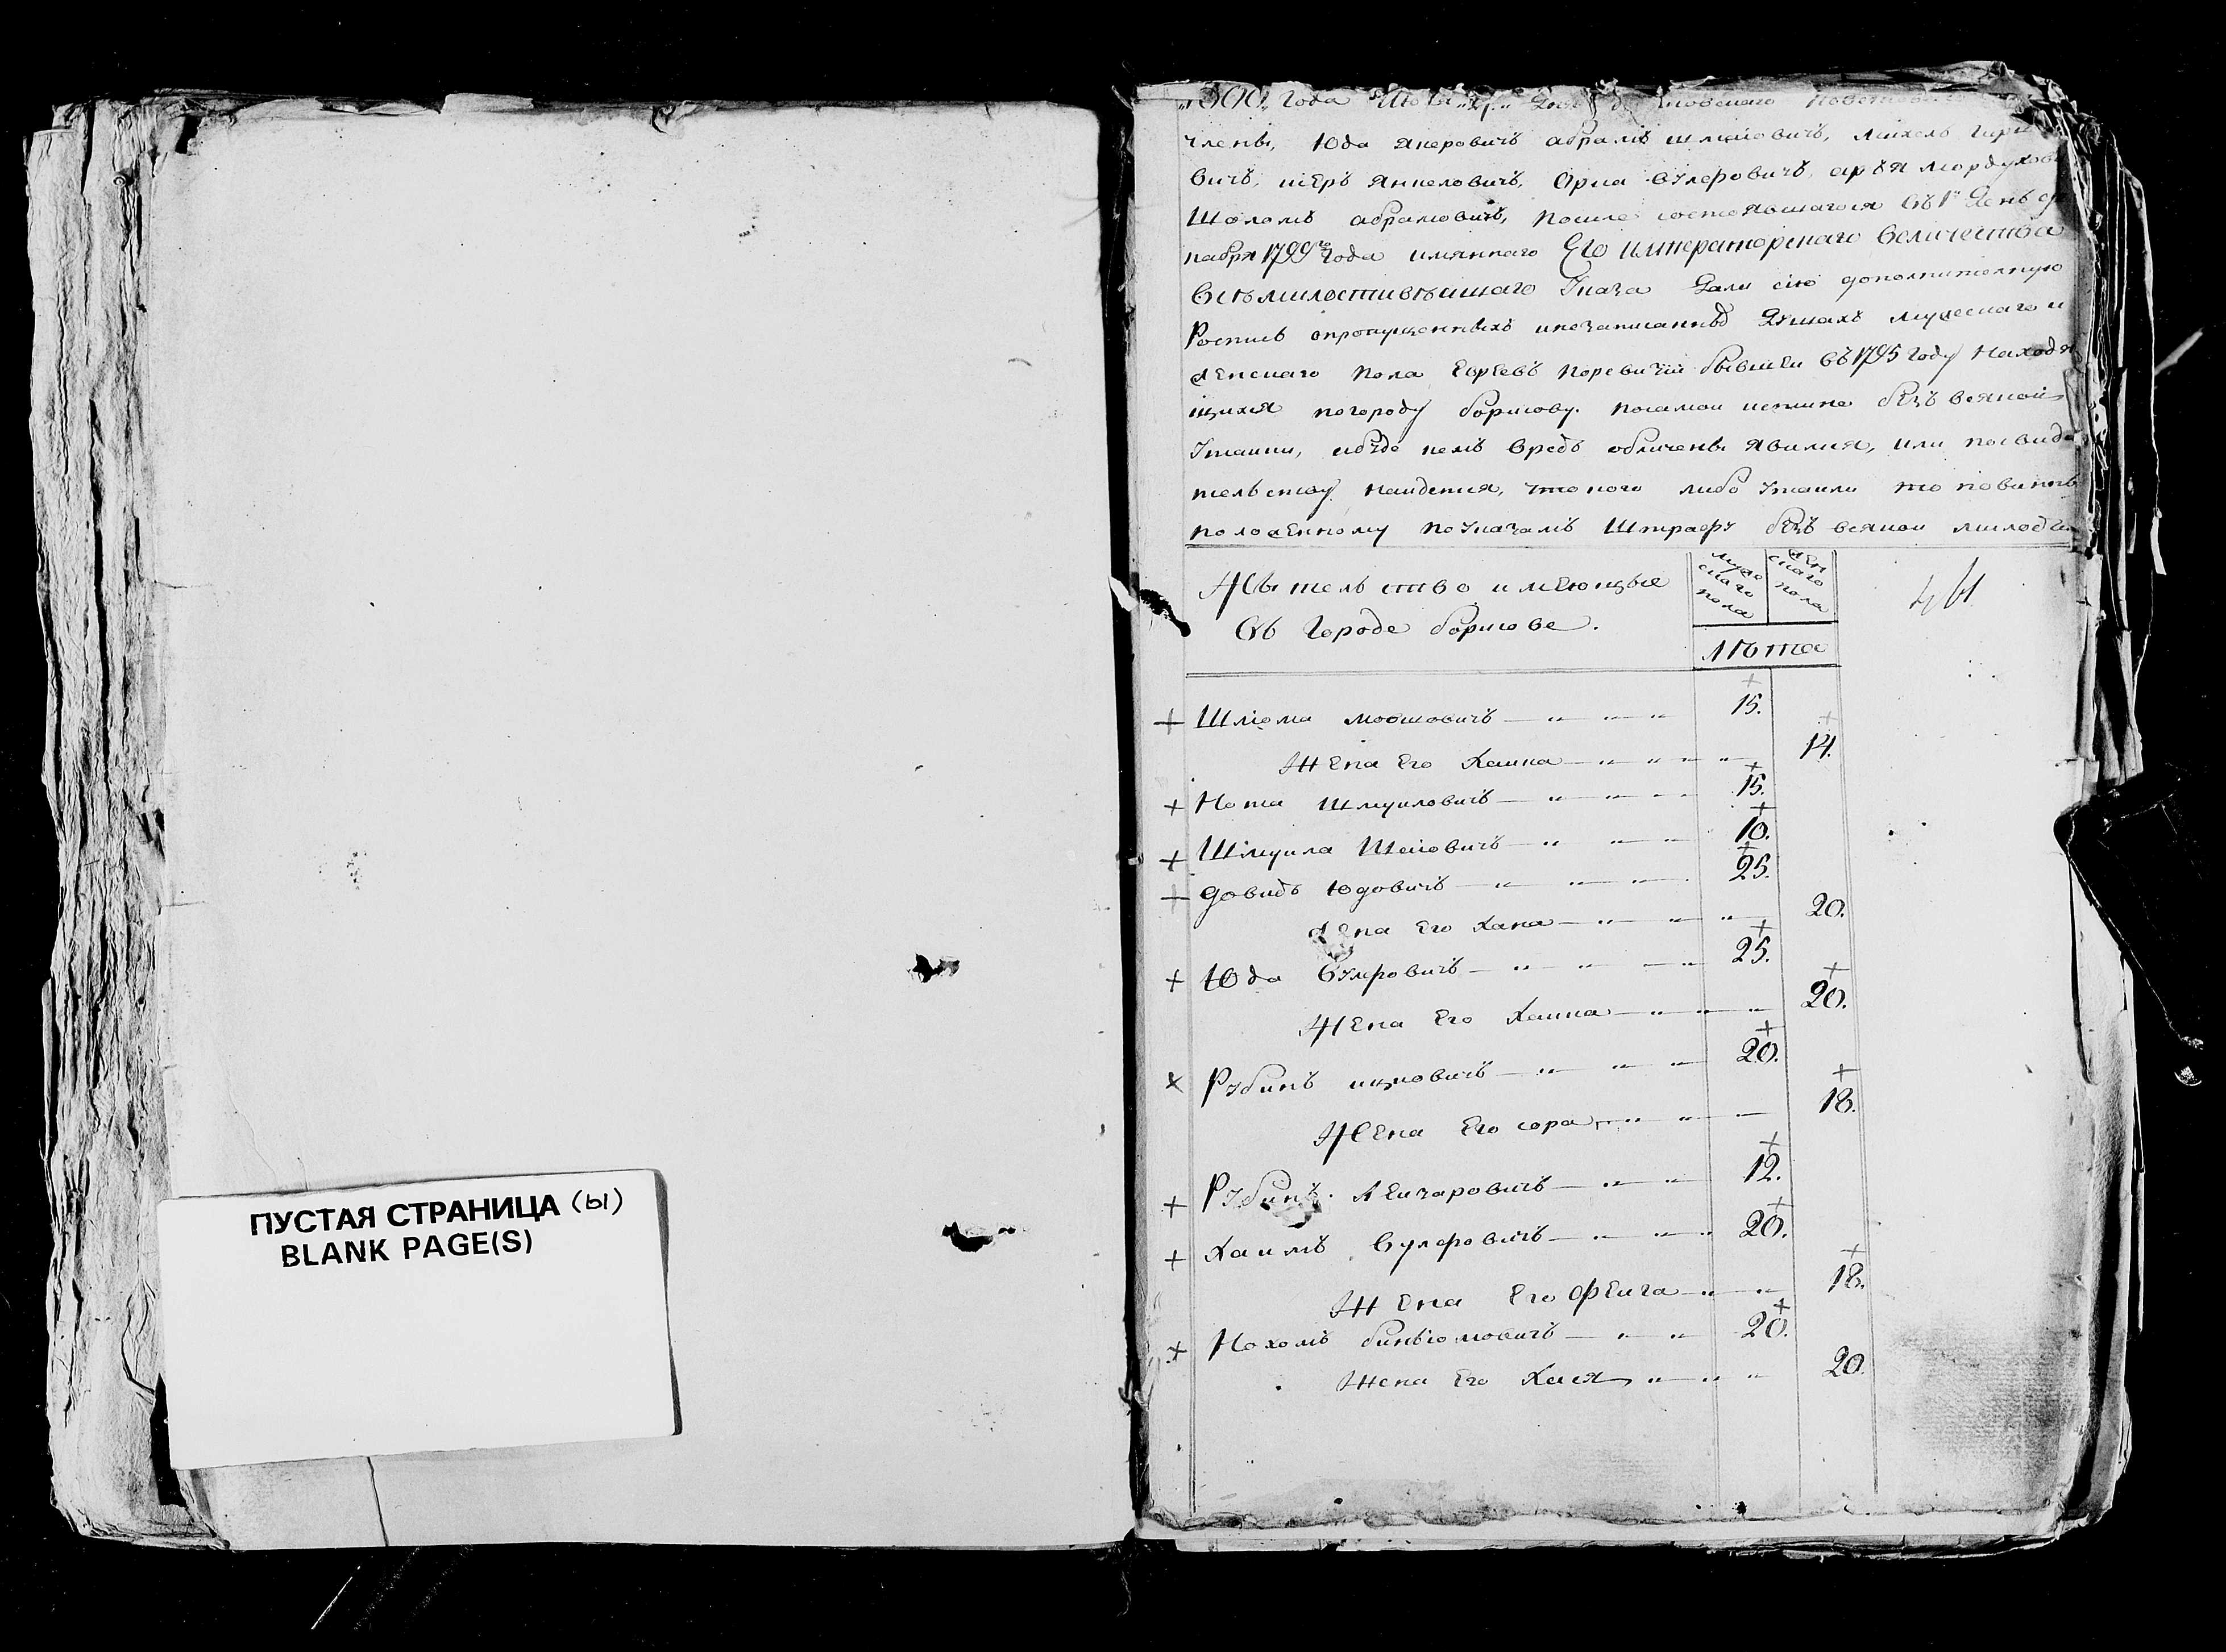 ПУСТАЯ СТРАНИЦА (ы)
BLANK PAGE(S)
года повето
члены, Юда абрамъ шмаіовичъ,
вичъ, Орка Вулфовичъ,
Шоломъ абрамовичъ, после состоявшагося въ 1й день
1799го года имяннаго Его императорскаго величества
Всѣмилостивѣйшаго Указа дали сию дополнителную
Роспись опропущенныхъ инезаписанныхъ душахъ мужескаго и
женскаго пола Еврѣевъ поревизіи бывшеи въ 1795 году наход
щихся погороду борисову. посамои истинне бѣзъ всякой
Утаики, абуде кемъ вредь обличены явимся, или посвиде
телству наидется, что кого либо утаили то повинны
положенному поУказамъ Штрафу бѣзъ всякои милос
Жытелство имѣющые
Въ городе борисове.
мужескаго пола
женскаго пола
лѣта
+ Шліома мовшовичъ 15.
Жена Его Хаика 14.
+ Нота Шмуиловичъ 15.
+ Шмуила 10.
+ Довидъ Юдовичъ 25.
жена Его Хана 20.
+ Юда Вулфовичъ 25.
Жена Его Хаика 20.
x Рубинъ ицковичъ 20.
Жена Его сора 18.
+ Рубинъ Леизаровичъ 12.
+ Хаимъ Вулфовичъ 20.
Жена Его Фѣига 18.
+ Нохомъ биньіомовичъ 20.
Жена Его Хася 20.